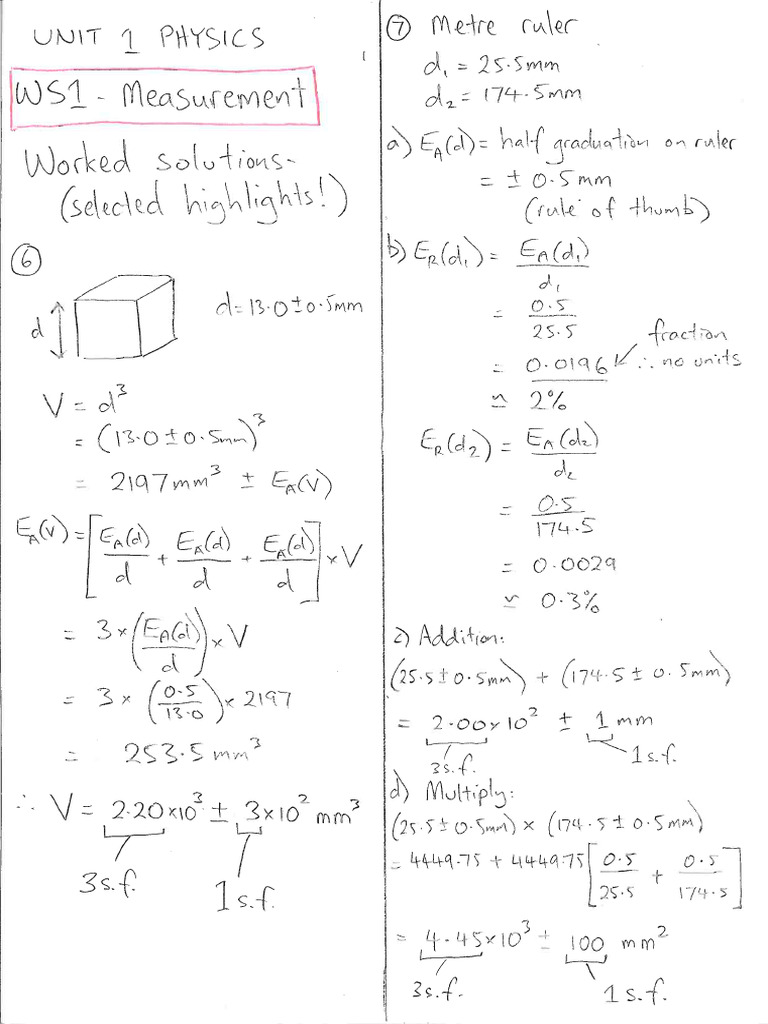 UNIT 1 PHYSICS
1
WS1 - Measurement
Worked solutions-
(selected highlights!)
⑥
d
d=13.0±0.5mm
V = d³
= (13.0±0.5mm)³
= 2197mm³ ± E_A(V)
E_A(V) = [E_A(d)/d + E_A(d)/d + E_A(d)/d] × V
= 3×(E_A(d)/d)×V
= 3 × (0.5/13.0) × 2197
= 253.5 mm³
∴ V = 2.20×10³ ± 3×10² mm³
3s.f. 1s.f.
⑦ Metre ruler
d₁ = 25.5mm
d₂ = 174.5mm
a) E_A(d) = half graduation on ruler
= ± 0.5mm
(rule of thumb)
b) E_R(d₁) = E_A(d₁)/d₁
= 0.5/25.5
fraction
= 0.0196 ∴ no units
≃ 2%
E_R(d₂) = E_A(d₂)/d₂
= 0.5/174.5
= 0.0029
≃ 0.3%
c) Addition:
(25.5±0.5mm) + (174.5±0.5mm)
= 2.00×10² ± 1mm
3s.f. 1s.f.
d) Multiply:
(25.5±0.5mm) × (174.5±0.5mm)
= 4449.75 + 4449.75[0.5/25.5 + 0.5/174.5]
= 4.45×10³ ± 100 mm²
3s.f. 1s.f.